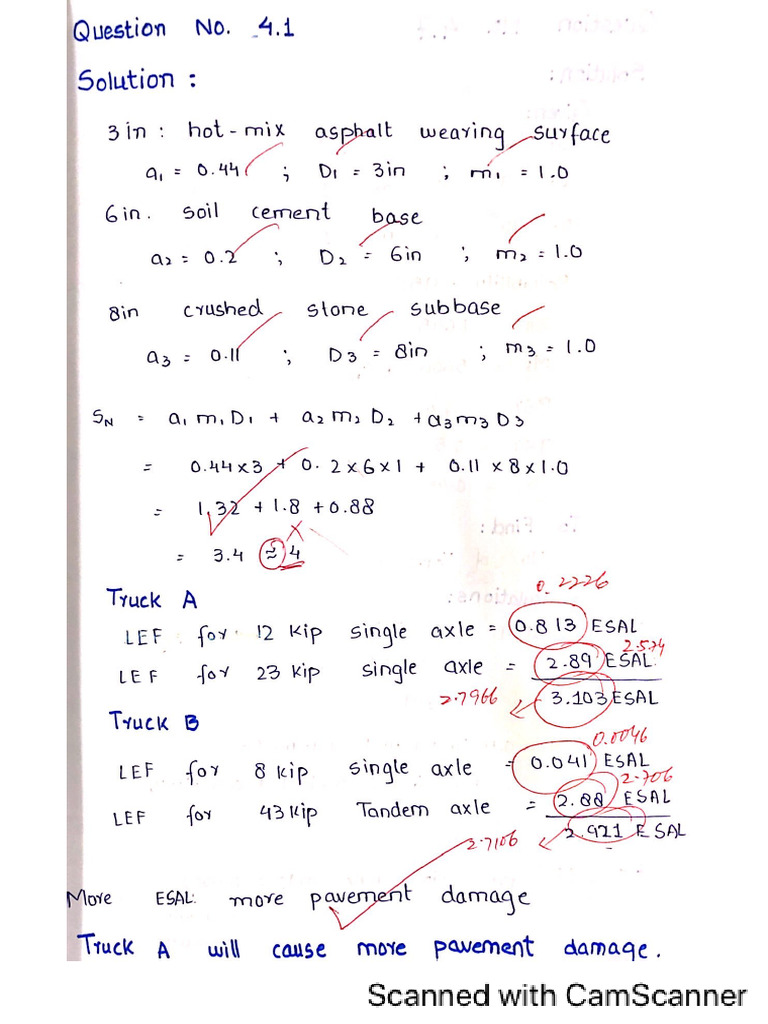 Question No. 4.1
Solution :
3in : hot-mix asphalt wearing surface
a₁ = 0.44 ; D₁ = 3in ; m₁ = 1.0
6in. soil cement base
a₂ = 0.2 ; D₂ = 6in ; m₂ = 1.0
8in crushed stone subbase
a₃ = 0.11 ; D₃ = 8in ; m₃ = 1.0
SN = a₁ m₁ D₁ + a₂ m₂ D₂ + a₃ m₃ D₃
= 0.44 x 3 + 0.2 x 6 x 1 + 0.11 x 8 x 1.0
= 1.32 + 1.8 + 0.88
= 3.4 ≈ 4
0.2226
Truck A
LEF for 12 kip single axle = 0.813 ESAL
2.574
LEF for 23 kip single axle = 2.89 ESAL
2.7966 3.103 ESAL
Truck B
0.0046
LEF for 8 kip single axle = 0.041 ESAL
2.706
LEF for 43 kip Tandem axle = 2.88 ESAL
2.7106 2.921 ESAL
More ESAL: more pavement damage
Truck A will cause more pavement damage.
Scanned with CamScanner